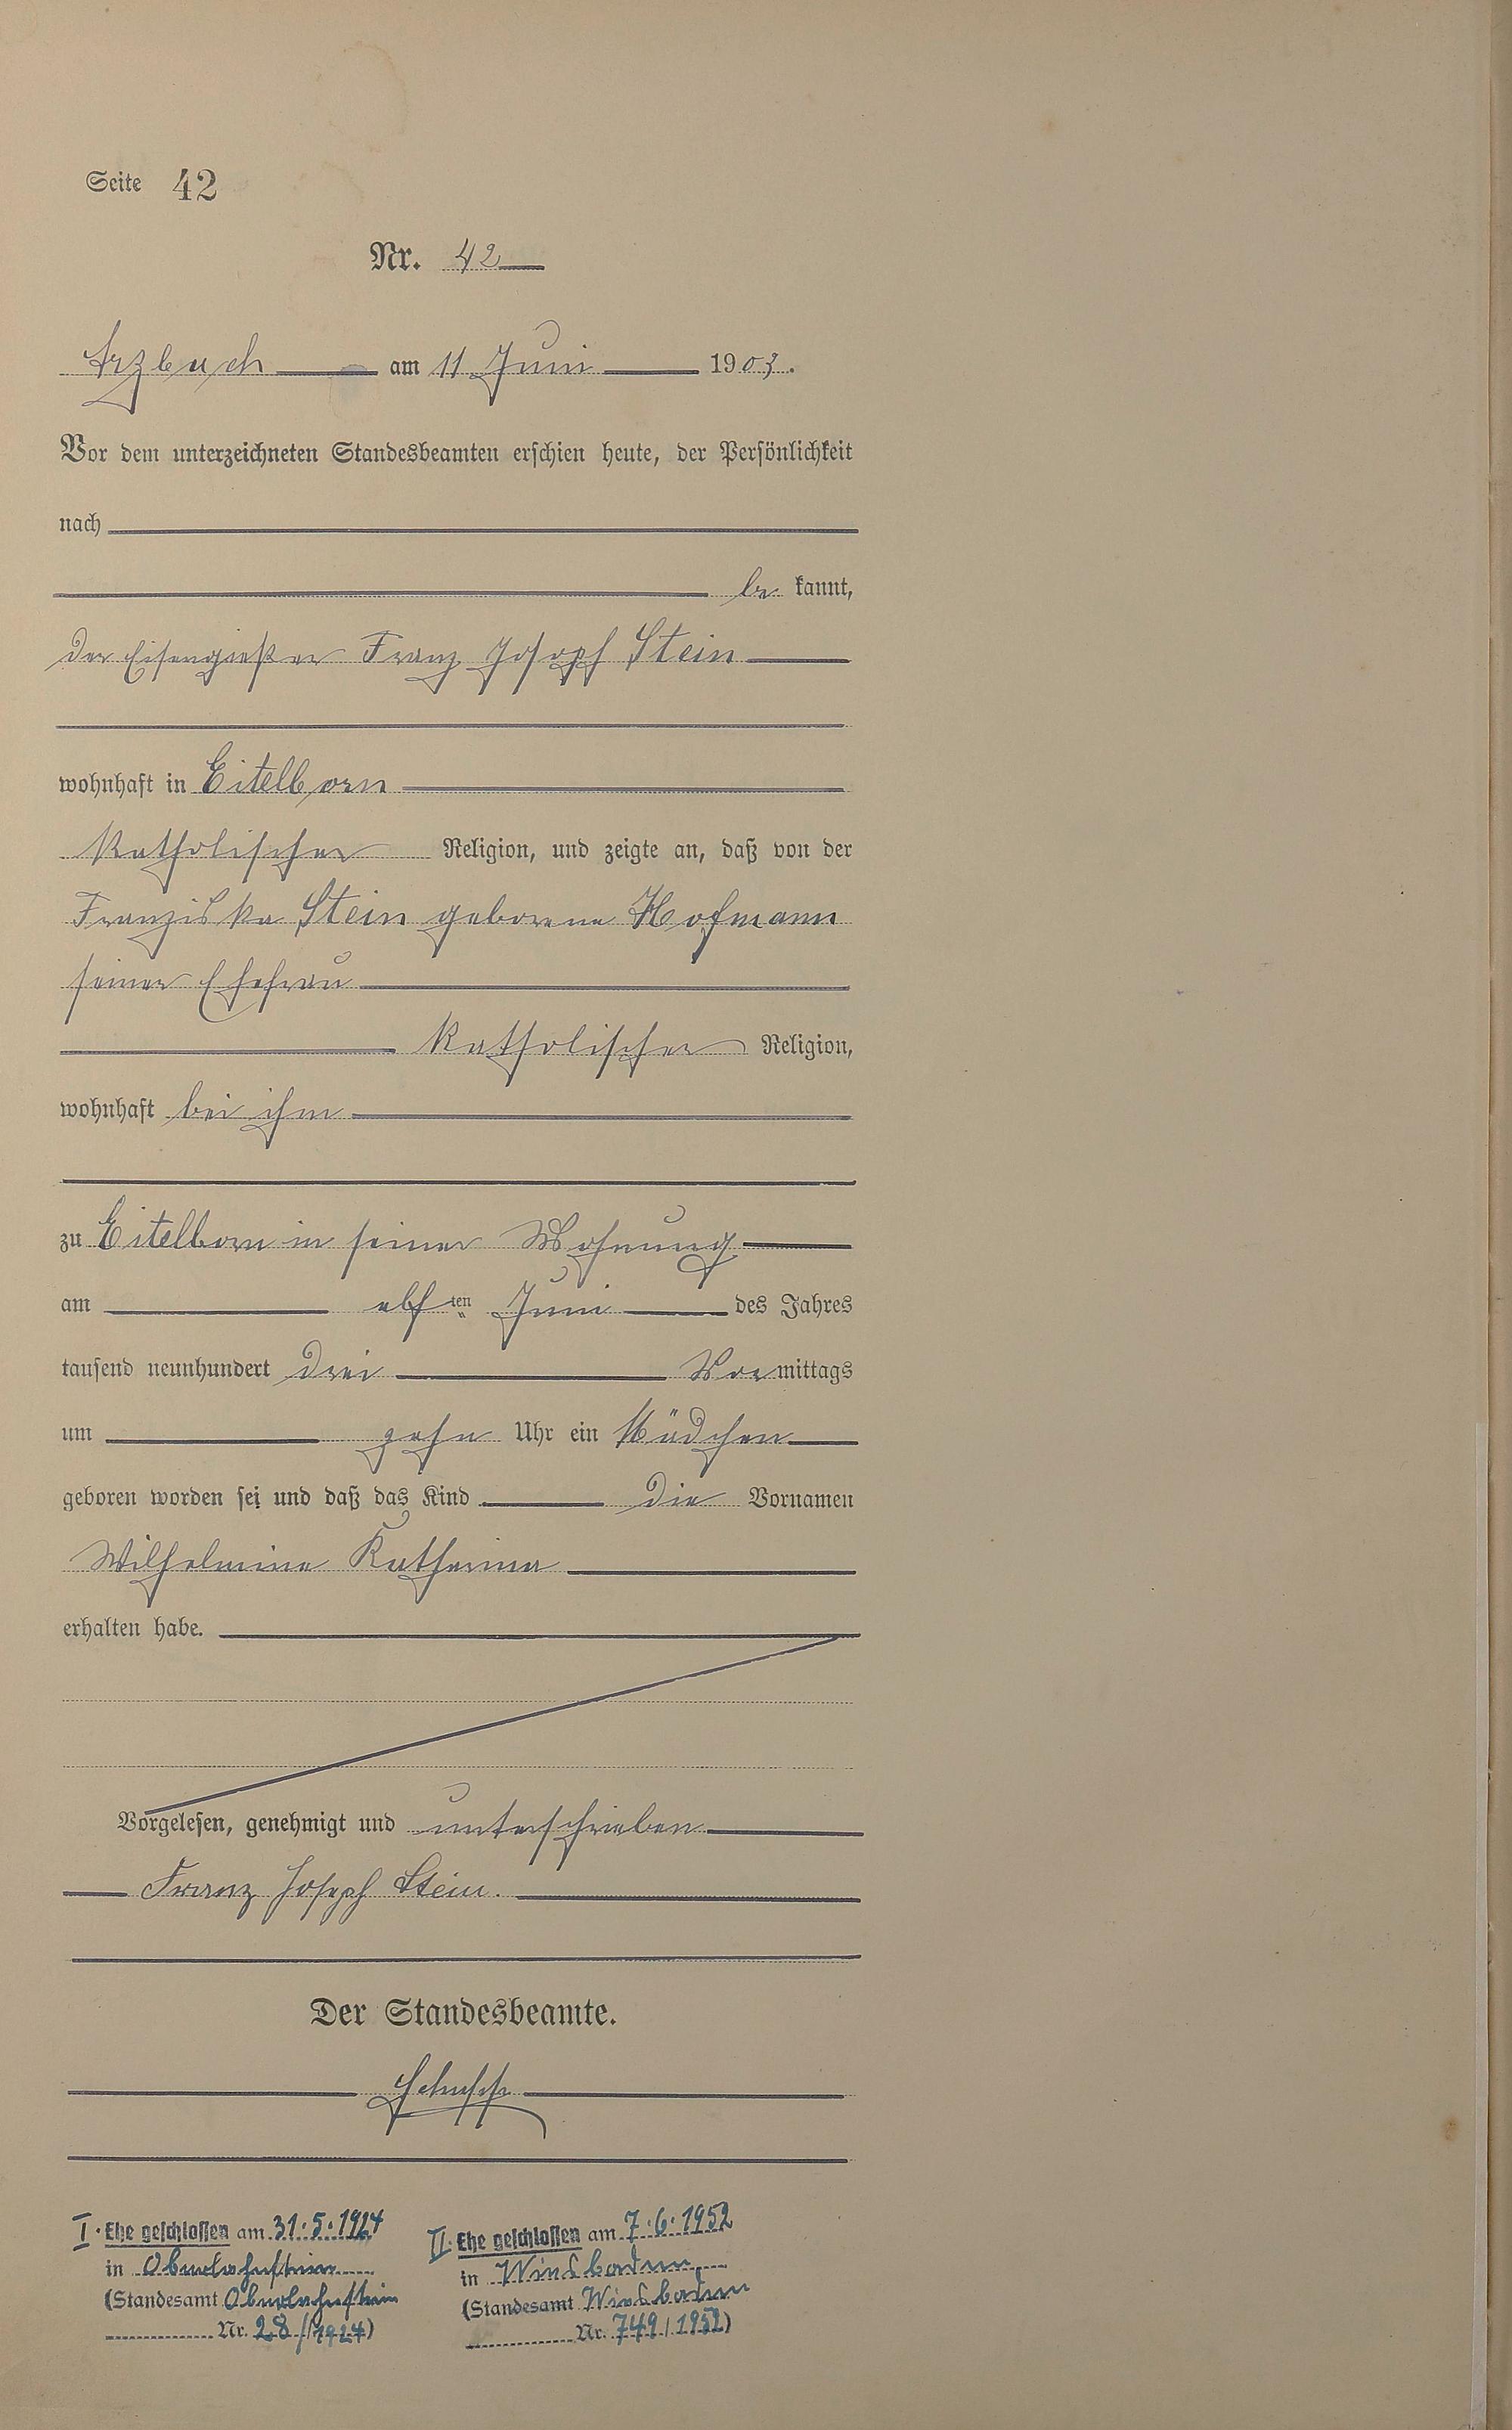 Seite 42
Nr. 42
Arzbach am 11 Juni 1903.
Vor dem unterzeichneten Standesbeamten erschien heute, der Persönlichkeit
nach
be kannt,
der Eisengießer Franz Joseph Stein
wohnhaft in Eitelborn
katholischer Religion, und zeigte an, daß von der
Franziska Stein geborene Hofmann
seiner Ehefrau
katholischer Religion,
wohnhaft bei ihm
zu Eitelborn in seiner Wohnung
am elf ten Juni des Jahres
tausend neunhundert drei Vormittags
um zehn Uhr ein Mädchen
geboren worden sei und daß das Kind die Vornamen
Wilhelmine Katharina
erhalten habe.
Vorgelesen, genehmigt und unterschrieben
Franz Joseph Stein.
Der Standesbeamte.
I. Ehe geschlossen am 31.5.1924
in Oberlahnstein
(Standesamt Oberlahnstein
Nr. 28/1924)
II. Ehe geschlossen am 7.6.1952
in Wiesbaden
(Standesamt Wiesbaden
Nr. 749/1952)